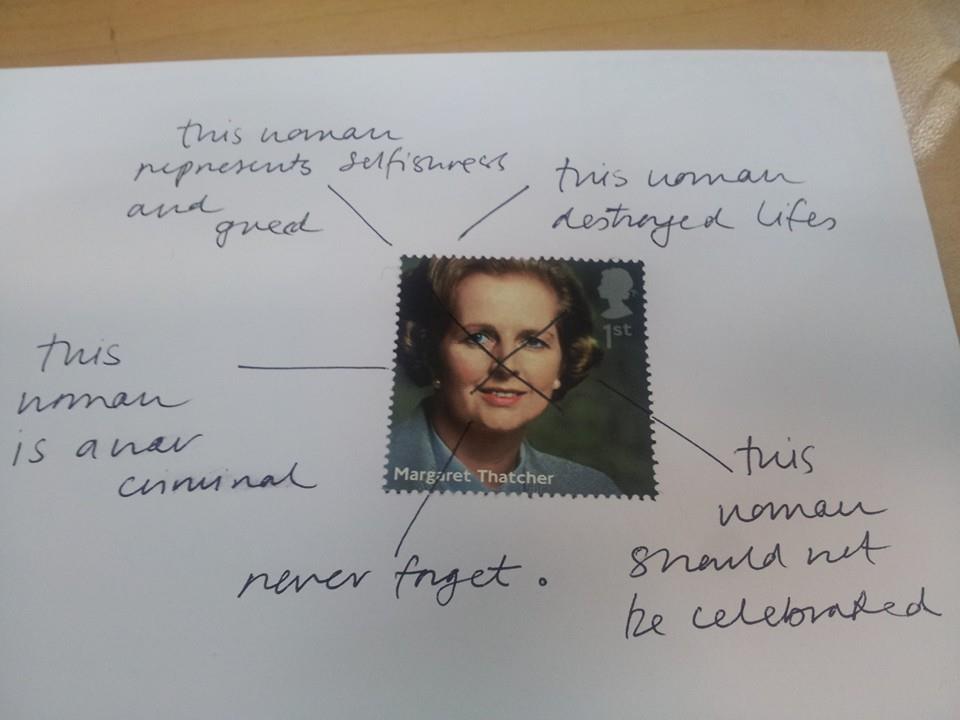 this woman
represents selfishness
and
greed
this woman
destroyed lifes
1st
Margaret Thatcher
this
woman
is a war
criminal
never forget.
this
woman
should not
be celebrated